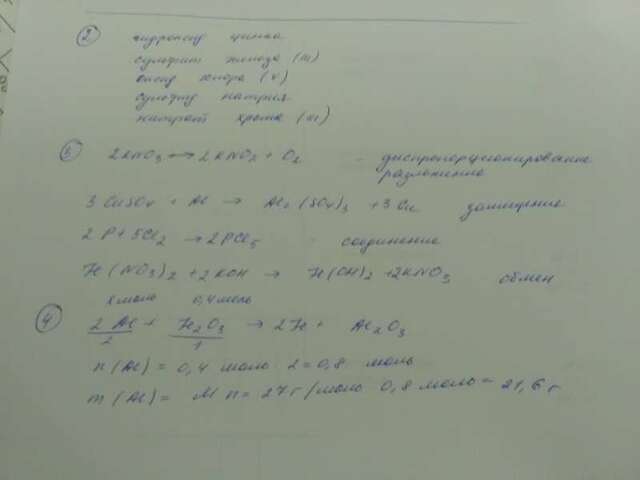 2 гидроксид цинка
сульфит железа (III)
оксид хлора (V)
сульфид натрия
нитрат хрома (III)
3 2KNO3 → 2KNO2 + O2 - диспропорционирование
разложение
3 CuSO4 + Al → Al2(SO4)3 + 3Cu замещение
2 P + 5Cl2 → 2PCl5 - соединение
Fe(NO3)2 + 2KOH → Fe(OH)2 + 2KNO3 обмен
x моль 0,4 моль
4 2 Al + Fe2O3 → 2Fe + Al2O3
2 1
n(Al) = 0,4 моль 2 = 0,8 моль
m(Al) = M n = 27 г/моль 0,8 моль = 21,6 г